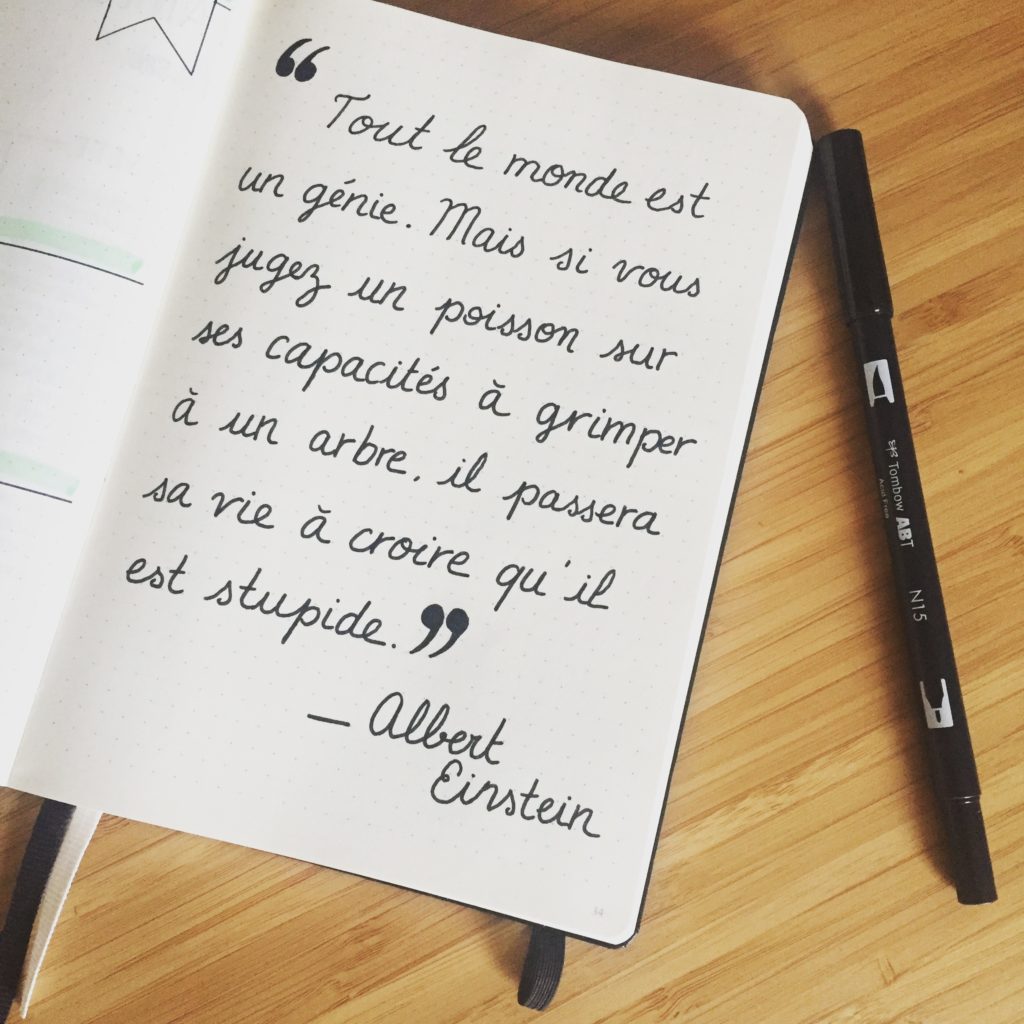 “ Tout le monde est
un génie. Mais si vous
jugez un poisson sur
ses capacités à grimper
à un arbre, il passera
sa vie à croire qu'il
est stupide. ”
— Albert
Einstein
34
Tombow ABT
Acid Free
N15